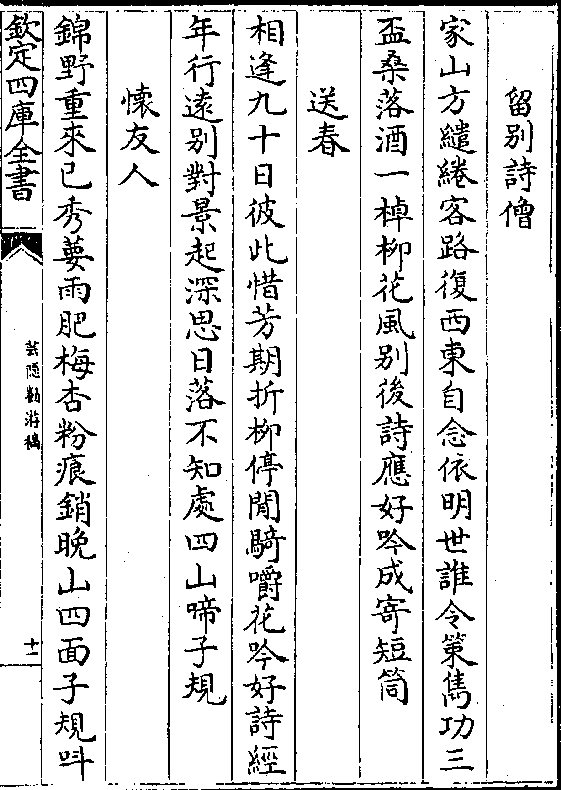 留别詩僧
家山方繾綣客路復西東自念依明世誰令策雋功三
盃桑落酒一棹柳花風别後詩應好吟成寄短筒
送春
相逢九十日彼此惜芳期折柳停閒騎嚼花吟好詩經
年行遠别對景起深思日落不知處四山啼子規
懷友人
錦野重來已秀葽雨肥梅杏粉痕銷晚山四面子規呌
欽定四庫全書
芸隠勌游稿
十二